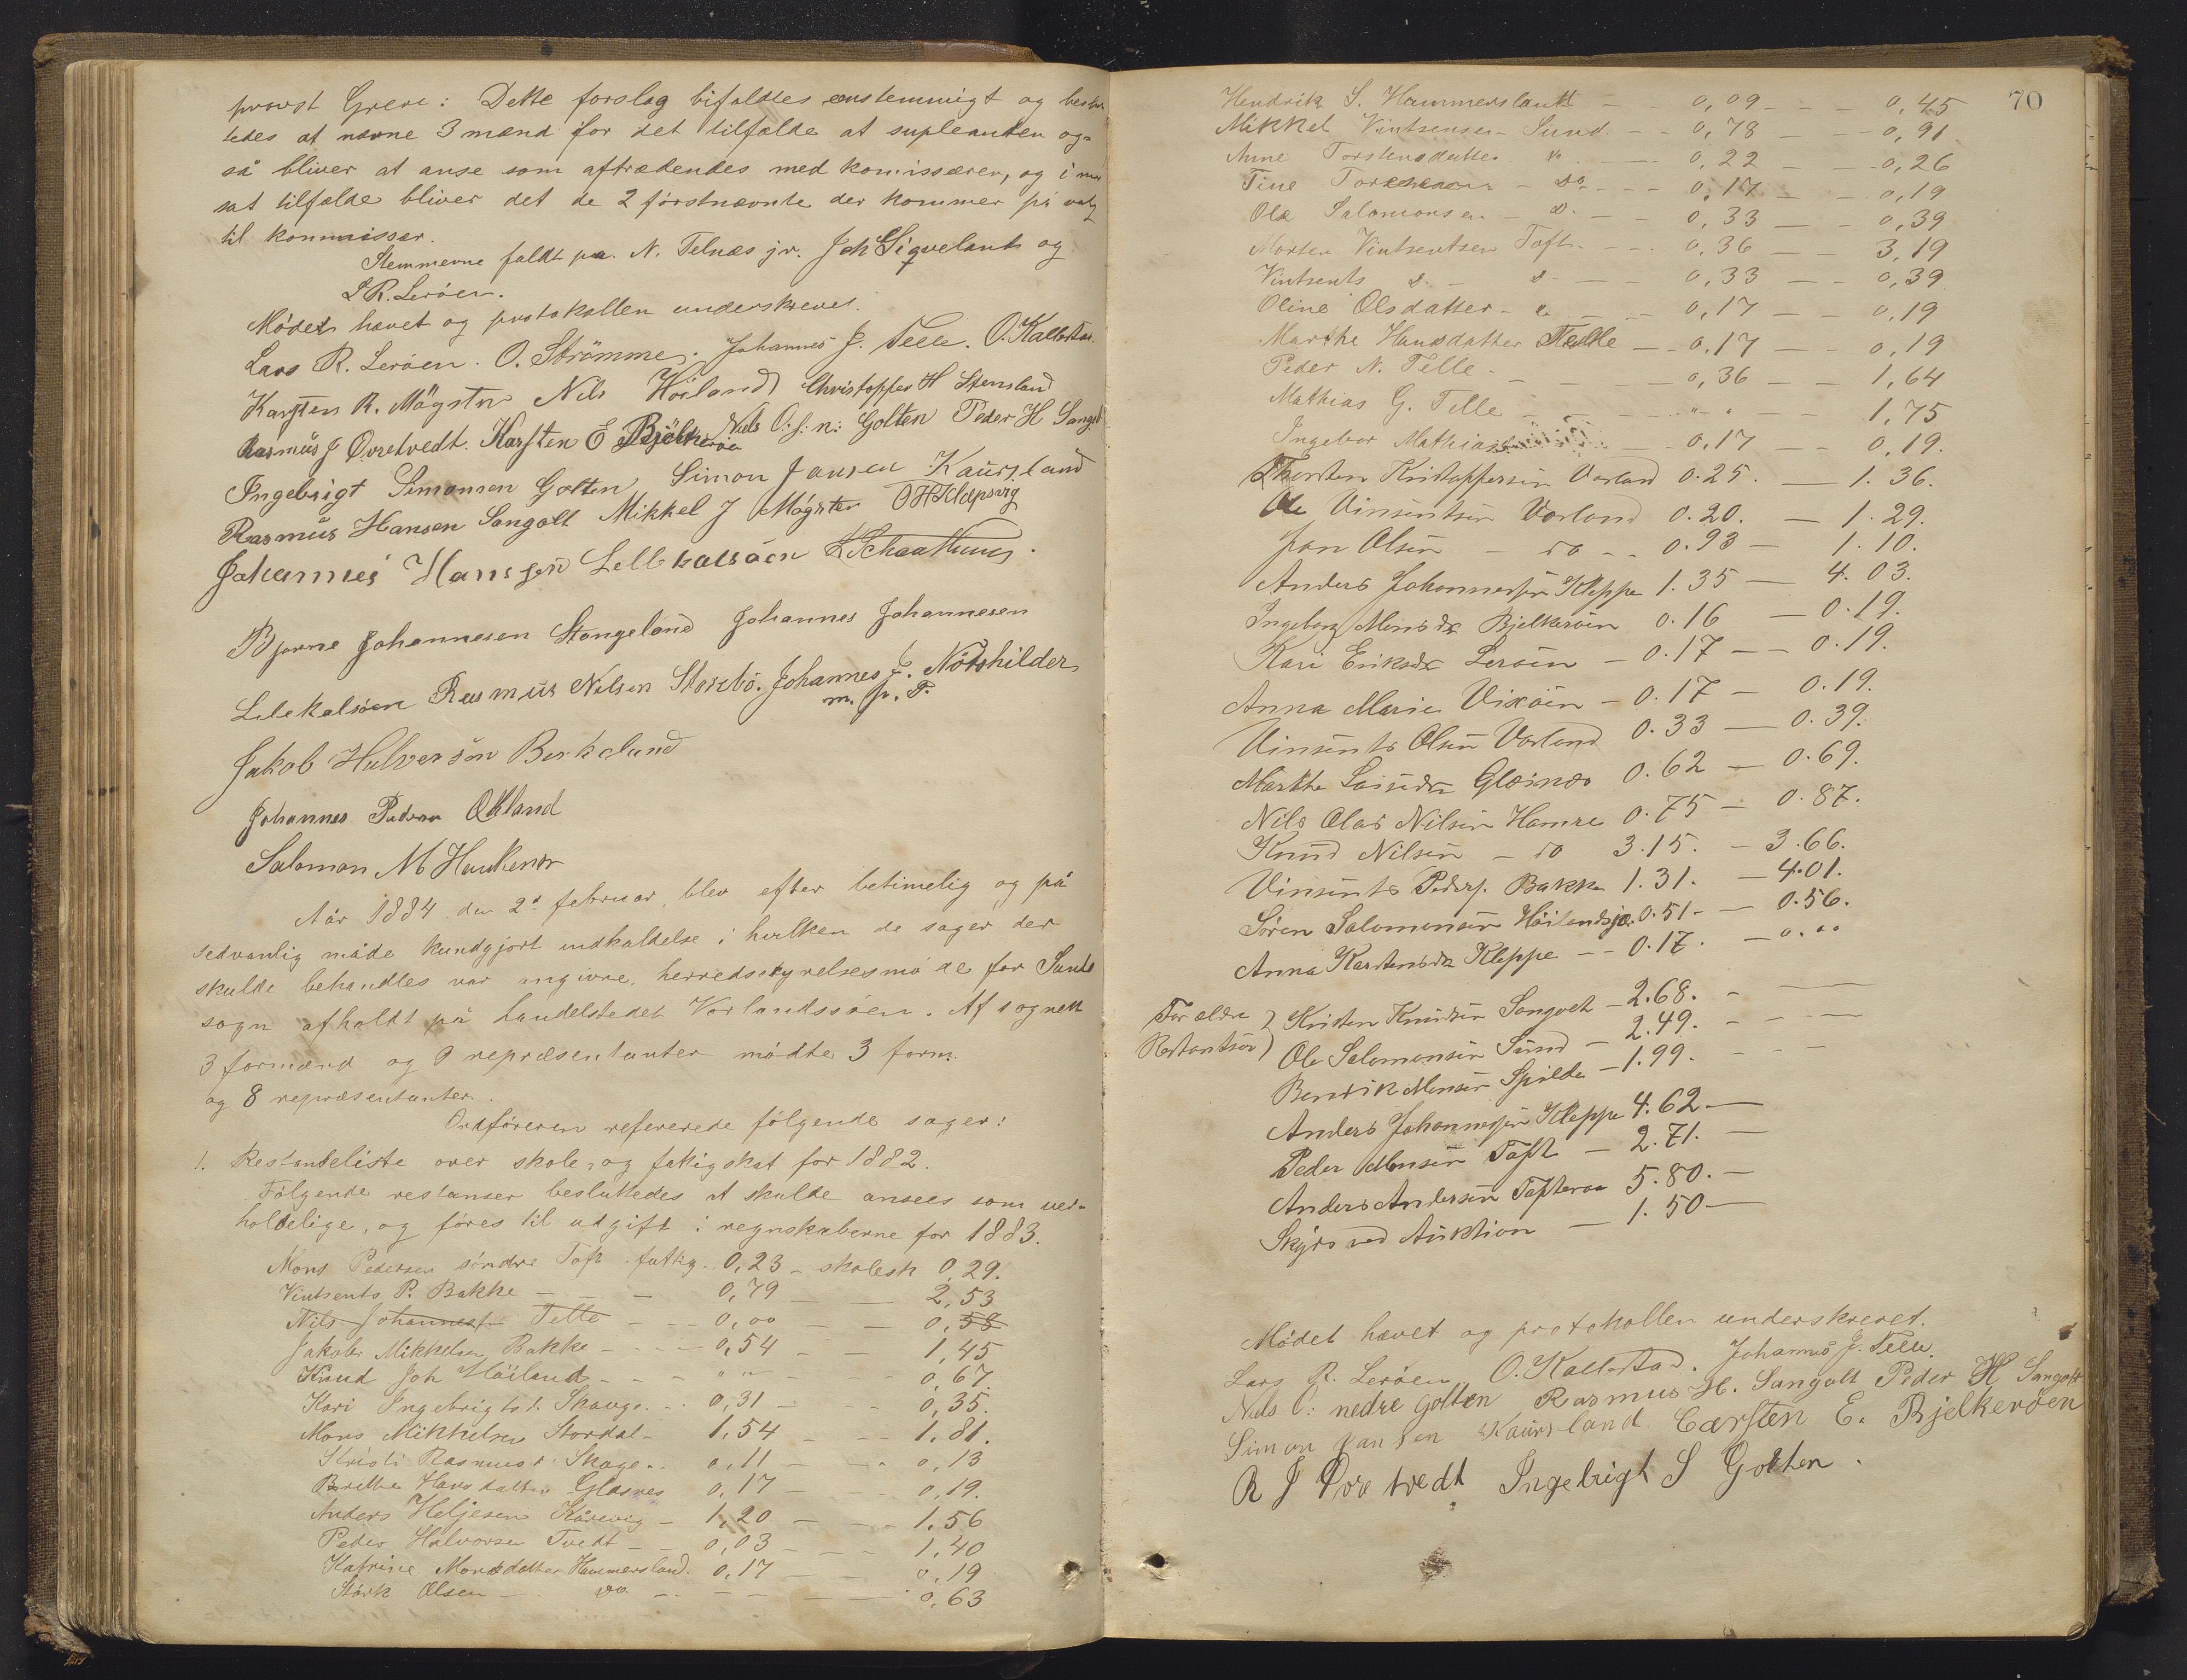 provst Greve: Dette forslag bifaldtes enstemmigt og beslut
tedes at nævne 3 mænd for det tilfælde at supleanten og=
så bliver at anse som aftrædendes med komissæren, og i mod
sat tilfælde bliver det de 2 förstnævnte der kommer på valg
til kommissær.
Stemmerne faldt på N. Telnæs jr. Joh Sigvelant og
L R. Leröen.
Mödet hævet og protokollen underskrevet.
Lars R. Leröen. O. Strömme. Johannes J. Telle. O. Kallestad.
Karsten R. Mögster Nils Höiland Christoffer H Stensland
Rasmus J Övretvedt. Karsten E Bjelkeröen Nils O. s. n: Golten Peder H Sangolt
Ingebrigt Simonsen Golten Simon Jansen Kaursland
Rasmus Hansen Sangolt Mikkel J Mögster O H Klepsvig
Johannes Hanssen Lillekalsöen L Schaathuun.
Bjarne Johannesen Stangeland Johannes Johannesen
Lilekalsöen Rasmus Nilsen Storebö. Johannes J. Nötskilder
m. p. P.
Jakob Halversön Birkeland
Johannes Pederser Økland
Salomon M Haukenær
Aår 1884 den 2d februar, blev efter betimelig og på
sedvanlig måde kundgjort indkaldelse i hvilken de sager der
skulde behandles var angivne, herredsstyrelsesmöde for Sunds
sogn afholdt på handelstedet Vorlandssöen. Af sognets
3 formænd og 9 repræsentanter mödte 3 form.
og 8 repræsentanter.
Ordföreren refererede fölgende sager:
1. Restanseliste over skole, og fatigskat for 1882.
Fölgende restanser besluttedes at skulde ansees som uer-
holdelige, og föres til udgift i regnskaberne for 1883.
Mons Pedersen söndre Toft fattig. 0,23 - skolesk 0,29.
Vintsents P. Bakke - - - 0,79 - - 2,53
Nils Johannesen Telle - - 0,00 - - 0,58
Jakob Mikkelsen Bakke - - - 0,54 - - 1,45
Knud Joh Höiland - - - " " - - 0,67
Kari Ingebrigtsd. Skauge. - 0,31 - - 0,35.
Mons Mikkelsen Stordal - 1,54 - - 1.81.
Kristi Rasmusd. Skoge. . 0,11 - - 0,13
Brithe Hansdatter Glasnes 0,17 - - 0,19.
Anders Heljesen Kårevig - 1,20 - - 1.56
Peder Halvorsen Tvedt - - 0,03 - - 1,40
Katrine Monsdatter Hammersland. 0,17 - - 0,19
Störk Olsen - do - - - - 0,63
70
Hendrik S. Hammerslantt - 0,09 - - 0,45
Mikkel Vintsensen Sund. - - 0,78 - - 0,91
Anne Torstensdatter do - - 0,22 - - 0,26
Tine - do - - 0,17 - - 0,19
Ola Salomonsen - do. - - 0,33 - - 0,39
Morten Vintsentsen Toft. - - 0,36 - - 3,19
Vintsents d. - d - - 0,33 - - 0,39
Oline Olsdatter - " - - 0,17 - - 0,19
Marthe Hansdatter Telle - - 0,17 - - 0,19
Peder N. Telle - - - 0,36 - - 1,64
Mathias G. Telle - - - " " - - 1,75
Ingebor - 0,17 - - 0,19.
Thorsten Kristoffersen Vorland 0.25. - 1.36.
Ole Vinsentsen Vorland 0.20. - 1.29.
Jon Olsen - do - - 0.93 - 1.10.
Anders Johannessen Kleppe 1.35 - 4.03.
Ingeborg Monsdr Bjelkeröen 0.16 - 0.19.
Kari Eriksdr Leröen - 0.17 - - 0.19.
Anna Marie Vixöen - 0.17 - 0.19.
Vinsents Olsen Vorland 0.33 - 0.39.
Marthe Larsdr Glæsnæs 0.62 - 0.69.
Nils Olas Nilsen Hamre 0.75 - 0.87.
Knud Nilsen - do 3.15. - 3.66.
Vinsents Peders. Bakke 1.31. - 4.01.
Sören Salomonsen Höilandsjø. 0.51. - 0.56.
Anna Karstensdr Kleppe - - 0.17. - 0.00
For eldre
Restantser
Kristen Knudsen Sangolt - 2.68. -
Ole Salomonsen Sund - 2.49. -
Bendik Monsen Spilde - 1.99. -
Anders Johannessen Kleppe 4.62 -
Peder Monsen Toft - 2.71. -
Anders Andersen Tofteraa 5.80. -
Skyds ved Auktion - 1.50 -
Mödet hævet og protokollen underskrevet.
Lars R. Leröen O. Kallestad. Johannes J. Telle.
Nils O: nedre Golten Rasmus H. Sangolt Peder H Sangolt
Simon Jansen Kaursland. Carsten E. Bjelkeröen
R J Övretvedt Ingebrigt S Golten.